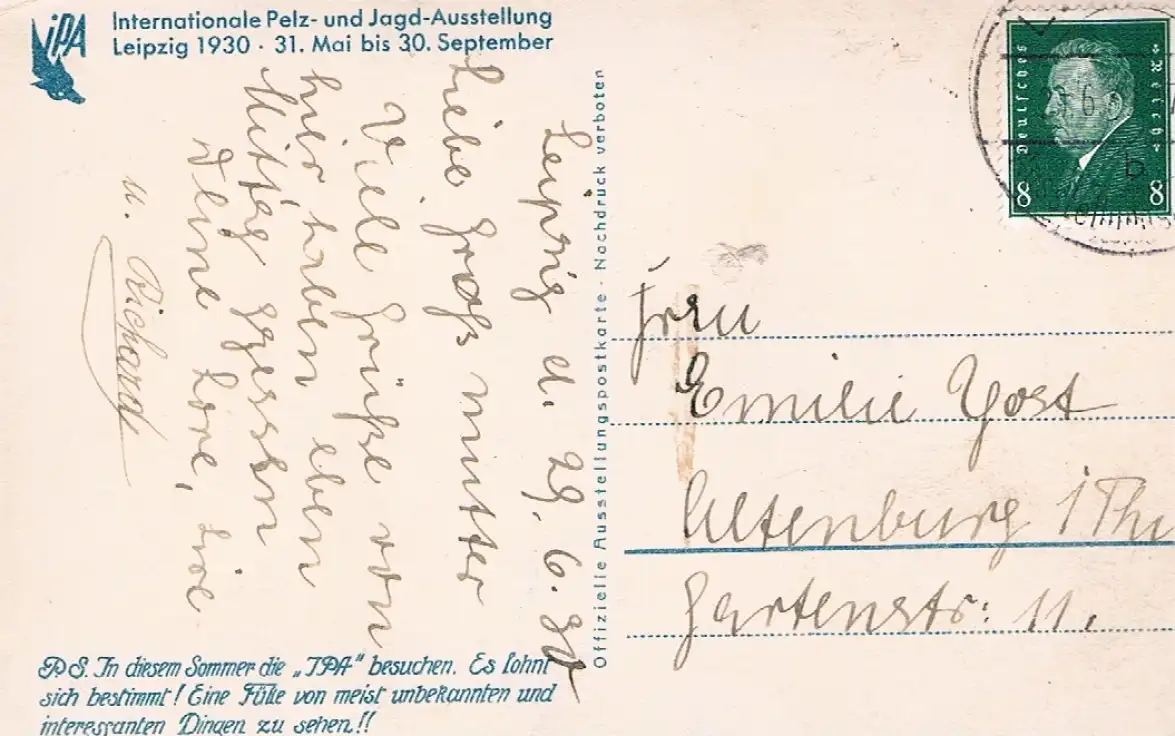 iPA
Internationale Pelz- und Jagd-Ausstellung
Leipzig 1930 · 31. Mai bis 30. September
Leipzig d. 29. 6. 30
Liebe Großmutter
Viele Grüße von
hier, haben eben
Mittag gegessen
Deine Lore,
u. Richard
P.S. In diesem Sommer die „IPA“ besuchen. Es lohnt
sich bestimmt! Eine Fülle von meist unbekannten und
interessanten Dingen zu sehen!!
Offizielle Ausstellungspostkarte · Nachdruck verboten
Deutsches Reich
8 8
b
Frau
Emilie Yost
Altenburg i Thü
Gartenstr: 11.